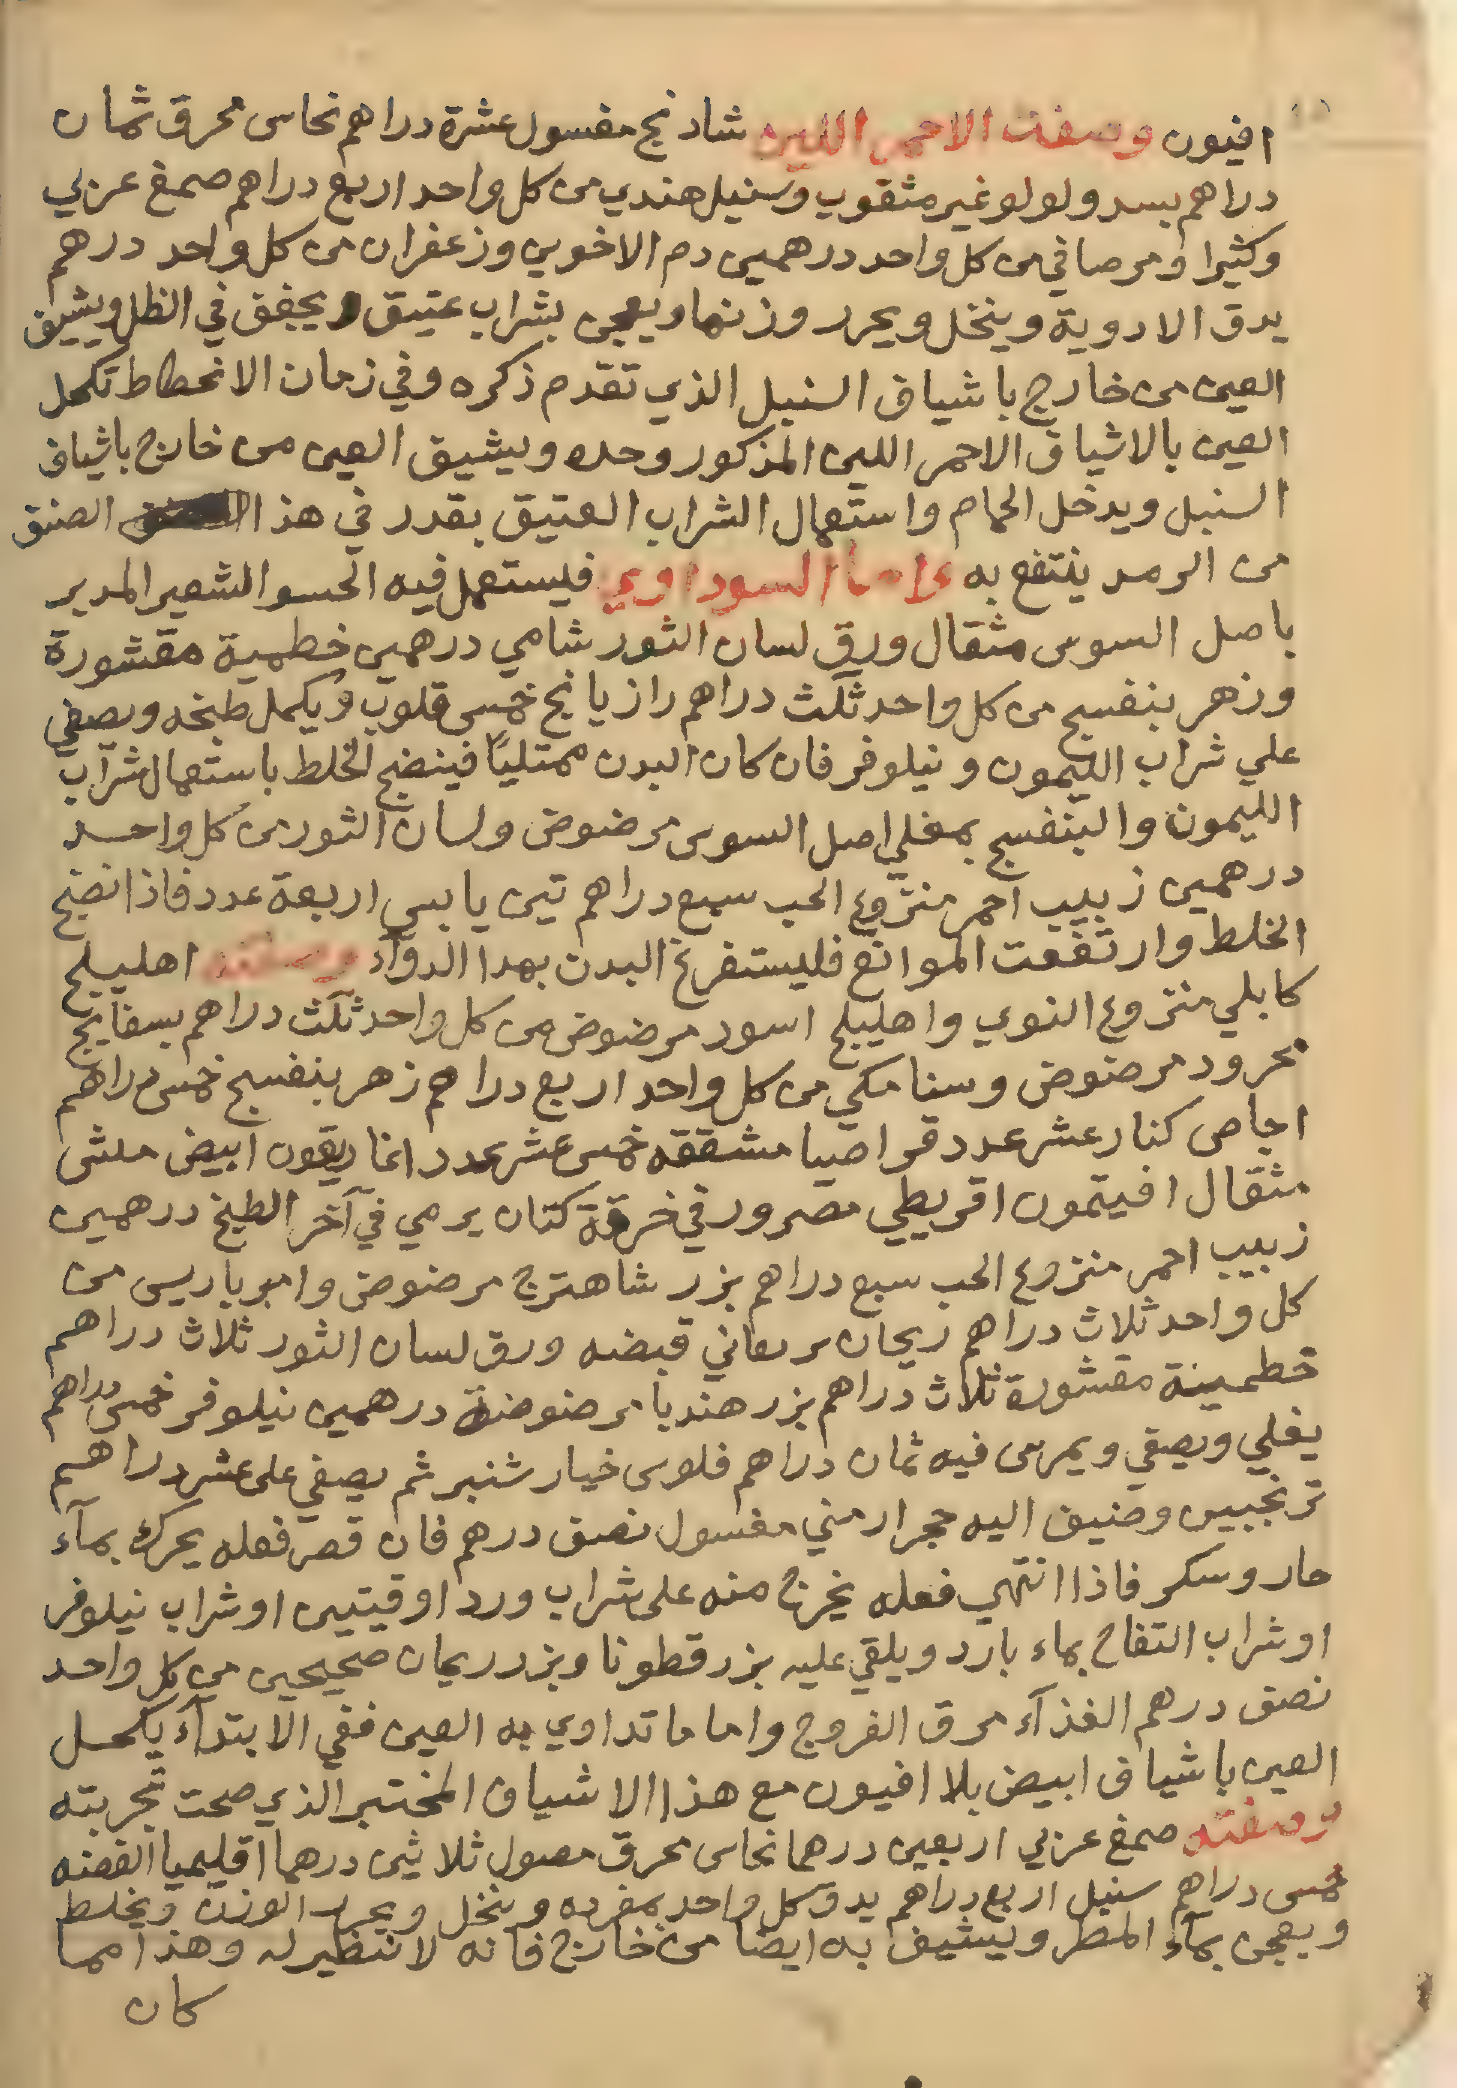 افيون وصفت الاحمر اللين شادنج مغسول عشرة دراهم نحاس محرق ثمان
دراهم بسد ولولو غير مثقوب وسنبل هندي من كل واحد اربع دراهم صمغ عربي
وكثيرا ومر صافي من كل واحد درهمين دم الاخوين وزعفران من كل واحد درهم
يدق الادوية وينخل ويحرر وزنها ويعجن بشراب عتيق ويجفف في الظل ويشيف
العين من خارج باشياف السنبل الذي تقدم ذكره وفي زمان الانحطاط تكحل
العين بالاشياف الاحمر اللين المذكور وحده ويشيف العين من خارج باشياف
السنبل ويدخل الحمام واستعمال الشراب العتيق بقدر في هذا الصنف
من الرمد ينتفع به واما السوداوي فليستعمل فيه الحسو الشعير المدبر
باصل السوس مثقال ورق لسان الثور شامي درهمين خطمية مقشورة
وزهر بنفسج من كل واحد ثلث دراهم رازيانج خمس قلوب ويكمل طبخه ويصفي
علي شراب الليمون ونيلوفر فان كان البدن ممتليًا فينضج الخلط باستعمال شراب
الليمون والبنفسج بمغلي اصل السوس مرضوض ولسان الثور من كل واحد
درهمين زبيب احمر منزوع الحب سبع دراهم تين يابس اربعة عدد فاذا نضج
الخلط وارتفعت الموانع فليستفرغ البدن بهدا الدوآء وصفته اهليلج
كابلي منزوع النوي واهليلج اسود مرضوض من كل واحد ثلث دراهم بسفايج
مجرود مرضوض وسنا مكي من كل واحد اربع دراهم زهر بنفسج خمس دراهم
اجاص كنار عشر عدد قراصيا مشققه خمس عشر عدد اغاريقون ابيض ملثي
مثقال افيتمون اقريطي مصرور في خرقة كتان يرمي في آخر الطبخ درهمين
زبيب احمر منزوع الحب سبع دراهم بزر شاهترج مرضوض وامبرباريس من
كل واحد ثلاث دراهم ريحان قبضه ورق لسان الثور ثلاث دراهم
خطمينة مقشورة ثلاث دراهم بزر هندبا مرضوضة درهمين نيلوفر خمس دراهم
يغلي ويصفي ويمرس فيه ثمان دراهم فلوس خيار شنبر ثم يصفي على عشر دراهم
ترنجبين وضيف اليه حجر ارمني مغسول نصف درهم فان قصر فعله يحرك بمآء
حار وسكر فاذا انتهي فعله يخرج منه على شراب ورد اوقيتين او شراب نيلوفر
او شراب التفاح بماء بارد ويلقي عليه بزر قطونا وبزر ريحان صحيحين من كل واحد
نصف درهم الغذآء مرق الفروج واما ما تداوي به العين ففي الابتدآء يكحل
العين باشياف ابيض بلا افيون مع هذا الاشياف المختبر الذي صحت تجربته
وصفته صمغ عربي اربعين درهما نحاس محرق مصول ثلاثين درهما اقليميا الفضه
خمس دراهم سنبل اربع دراهم يدق كل واحد بمفرده وينخل ويحرر الوزن ويخلط
ويعجن بمآء المطر ويشيف به ايضا من خارج فانه لا نظير له وهذا مما
كان